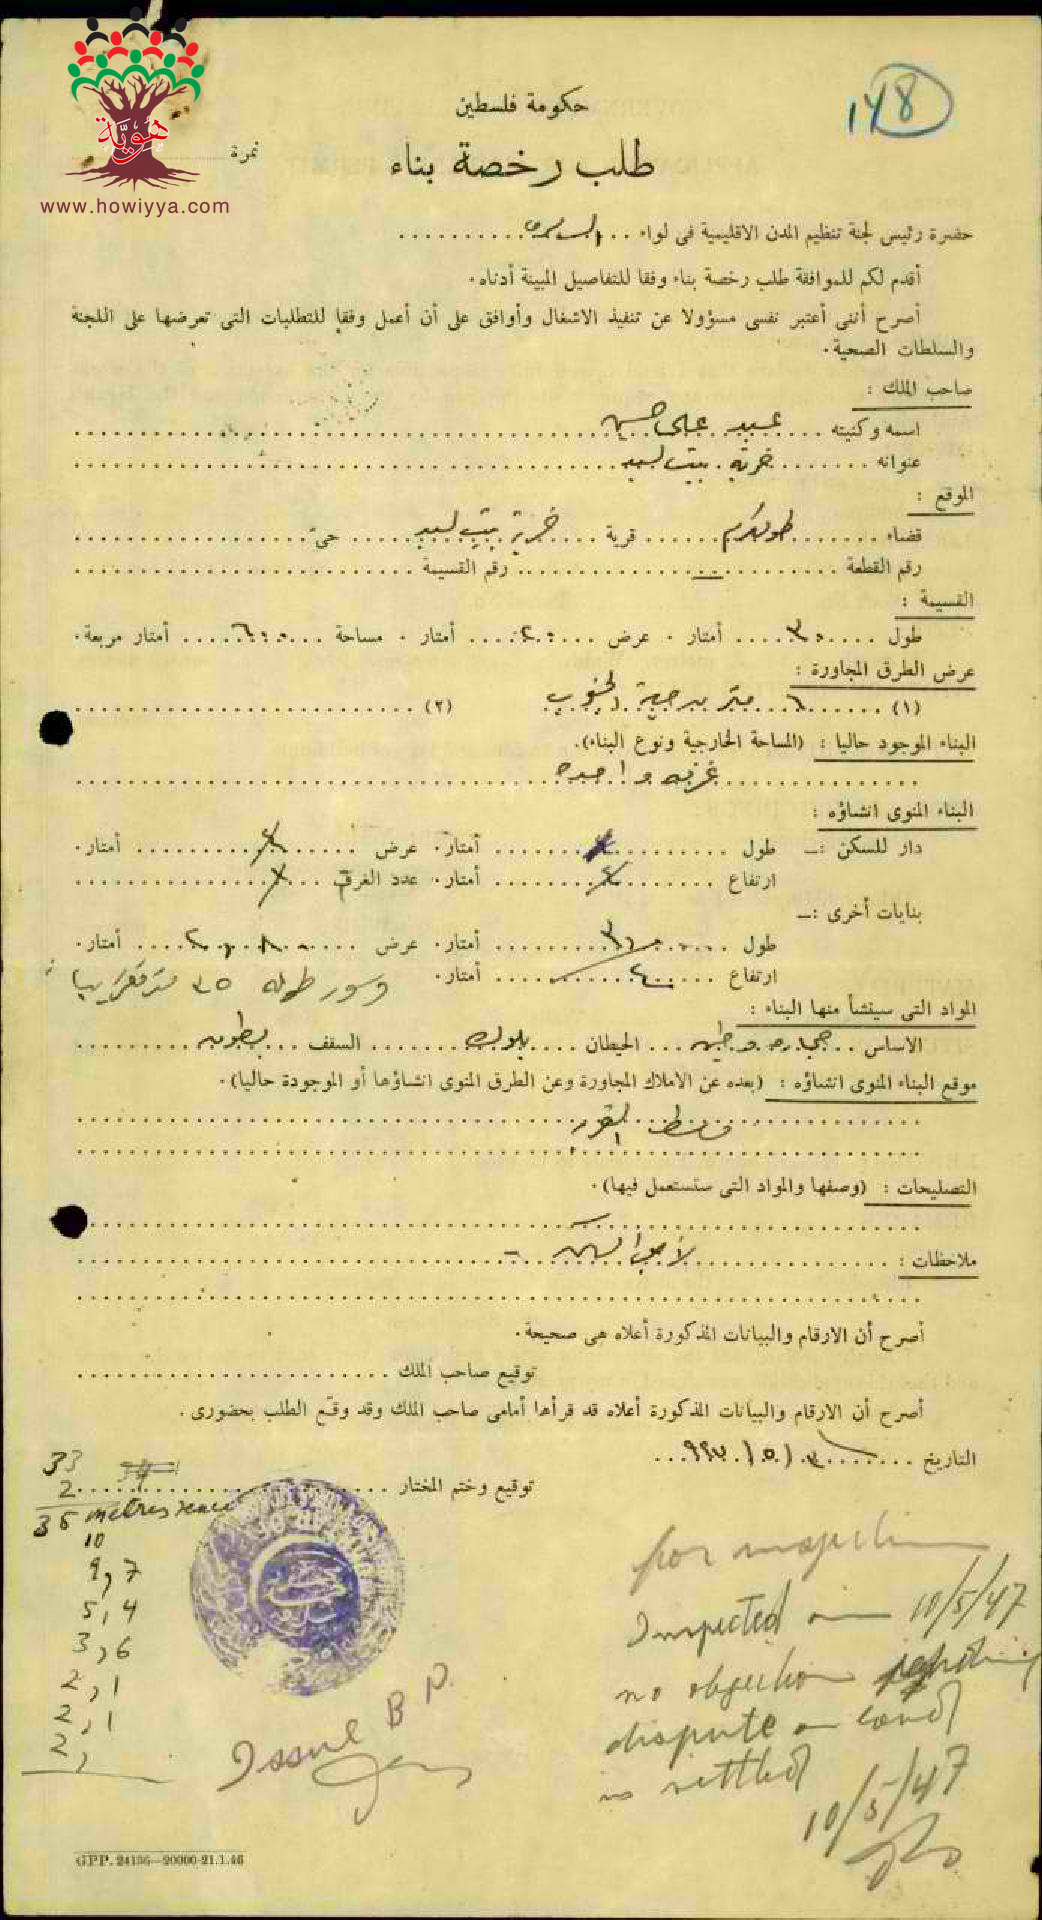 هُوِيَّة
www.howiyya.com
148
حكومة فلسطين
طلب رخصة بناء
نمرة
حضرة رئيس لجنة تنظيم المدن الاقليمية في لواء
أقدم لكم للموافقة طلب رخصة بناء وفقا للتفاصيل المبينة أدناه.
أصرح أنني أعتبر نفسي مسؤولا عن تنفيذ الاشغال وأوافق على أن أعمل وفقا للمتطلبات التي تعرضها على اللجنة
والسلطات الصحية.
صاحب الملك :
اسمه وكنيته عبيد علي حسين
عنوانه خربة بيت ليد
الموقع :
قضاء طولكرم قرية خربة بيت ليد حي
رقم القطعة — رقم القسيمة
القسيمة :
طول ٣٠ أمتار . عرض ٢٠ أمتار . مساحة ٦٠٠ أمتار مربعة.
عرض الطرق المجاورة :
(١) ٦ متر من جهة الجنوب (٢)
البناء الموجود حاليا : (المساحة الخارجية ونوع البناء).
غرفه واحده
البناء المنوى انشاؤه :
دار للسكن :— طول أمتار. عرض أمتار.
ارتفاع أمتار. عدد الغرف
بنايات أخرى :—
طول أمتار. عرض أمتار.
ارتفاع أمتار. وسور طوله ٣٥ متر تقريبا
المواد التي سينشأ منها البناء :
الاساس حجاره وطين الحيطان بلوك السقف بطون
موقع البناء المنوى انشاؤه : (بعده عن الاملاك المجاورة وعن الطرق المنوى انشاؤها أو الموجودة حاليا).
التصليحات : (وصفها والمواد التي ستستعمل فيها).
ملاحظات : لأجل السكن
أصرح أن الارقام والبيانات المذكورة أعلاه هي صحيحة.
توقيع صاحب الملك
أصرح أن الارقام والبيانات المذكورة أعلاه قد قرأها أمامي صاحب الملك وقد وقع الطلب بحضوري .
التاريخ
توقيع وختم المختار
33
2
35 metres
10
9,7
5,4
3,6
2,1
2,1
2,
for inspection
Inspected on 10/5/47
no objection
dispute on land
is settled
10/5/47
Issue B P.
GPP. 24136—20000-21.1.46